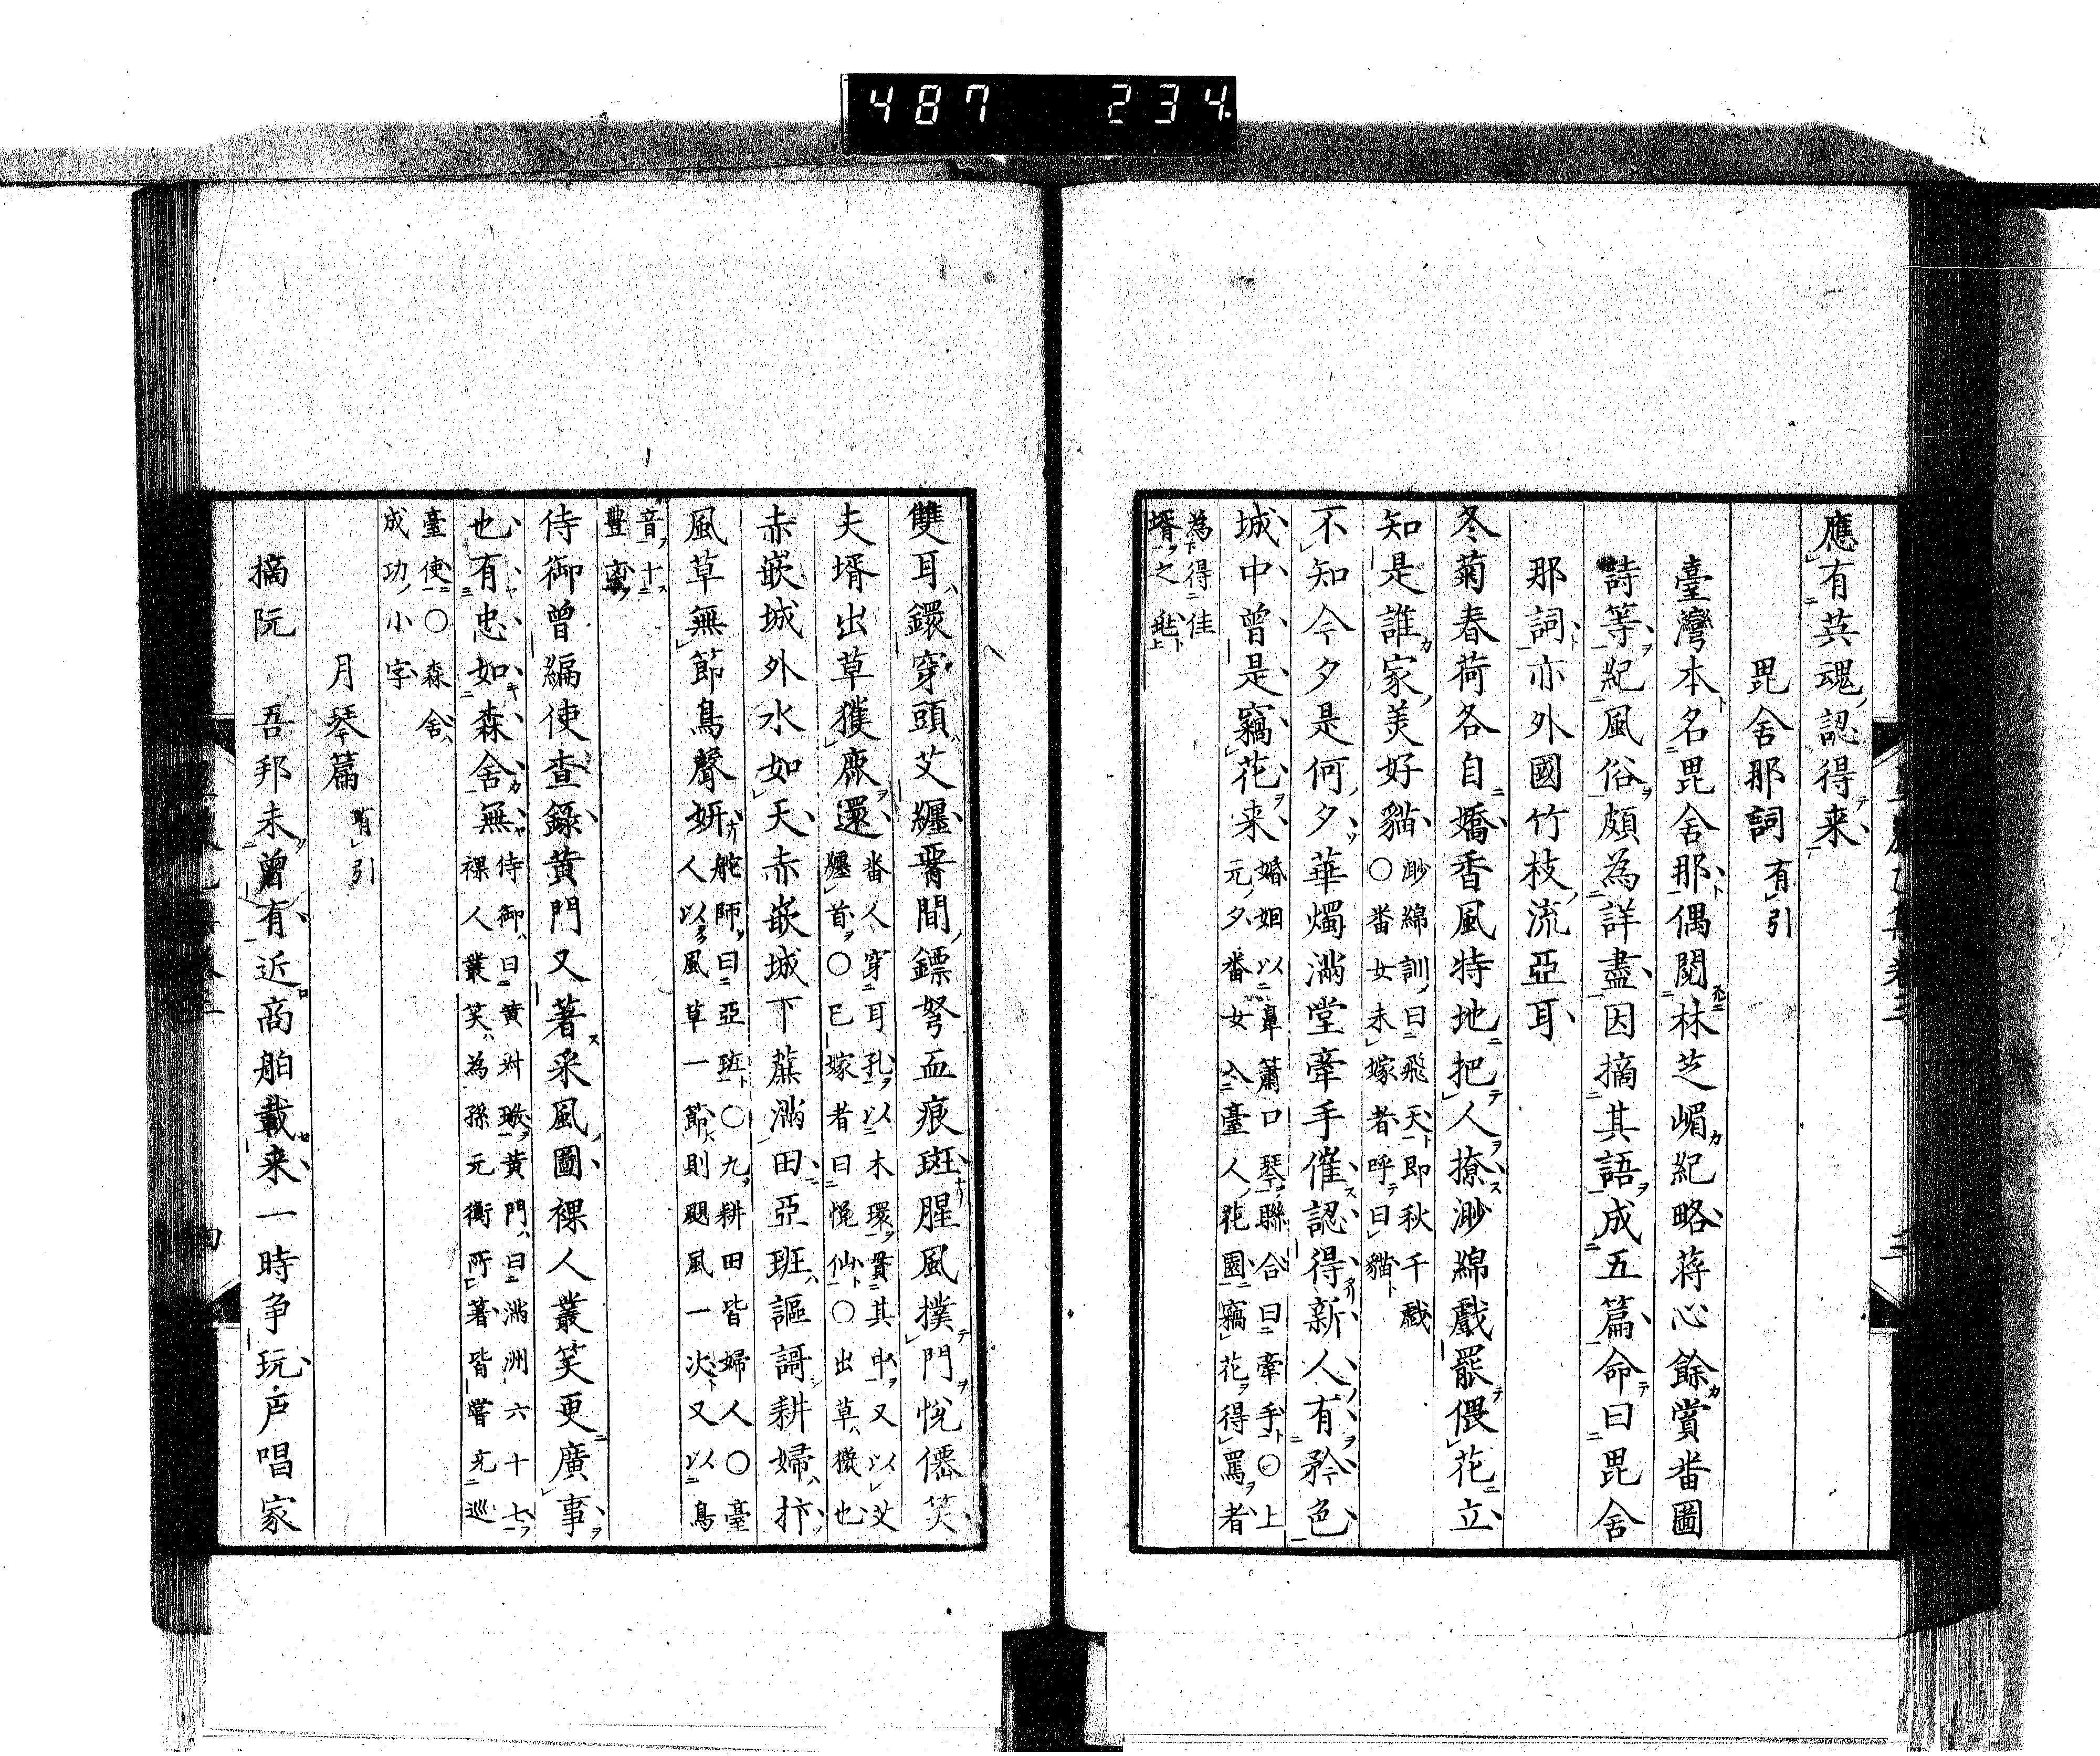 487 234.
應有英魂認得来
毘舎那詞 有引
臺灣本名毘舎那偶閲林芝嵋紀略蒋心餘賞畨圖
詩等紀風俗頗為詳盡因摘其語成五篇命曰毘舎
那詞亦外國竹枝流亞耳
冬菊春荷各自嬌香風特地把人撩渺綿戲罷偎花立
知是誰家美好貓 渺綿訓曰飛天即秋千戲
〇畨女未嫁者呼曰貓
不知今夕是何夕華燭滿堂牽手催認得新人有矜色
城中曾是竊花来 婚姻以鼻簫口琴聯合曰牽手〇上
元夕畨女入臺人花園竊花得罵者
為得佳
壻之
雙耳鐶穿頭艾纏胥間鏢弩血痕斑腥風撲門悅僊笑
夫壻出草獲鹿還 畨人穿耳孔以木環貫其中又以艾
纏首〇已嫁者曰悅仙〇出草獵也
赤嵌城外水如天赤嵌城下蔗滿田亞班謳謌耕婦抃
風草無節鳥聲妍 舵師曰亞班〇九耕田皆婦人〇臺
人以風草一節則颶風一次又以鳥
音十
豐
侍御曾編使査錄黄門又著采風圖裸人叢笑更廣事
也有忠如森舎無 侍御曰黄叔璥黄門曰滿洲六十七
裸人叢笑為孫元衡所著皆嘗充巡
臺使〇森舎
成功小字
月琴篇 有引
摘阮 吾邦未曾有近商舶載来一時争玩戸唱家